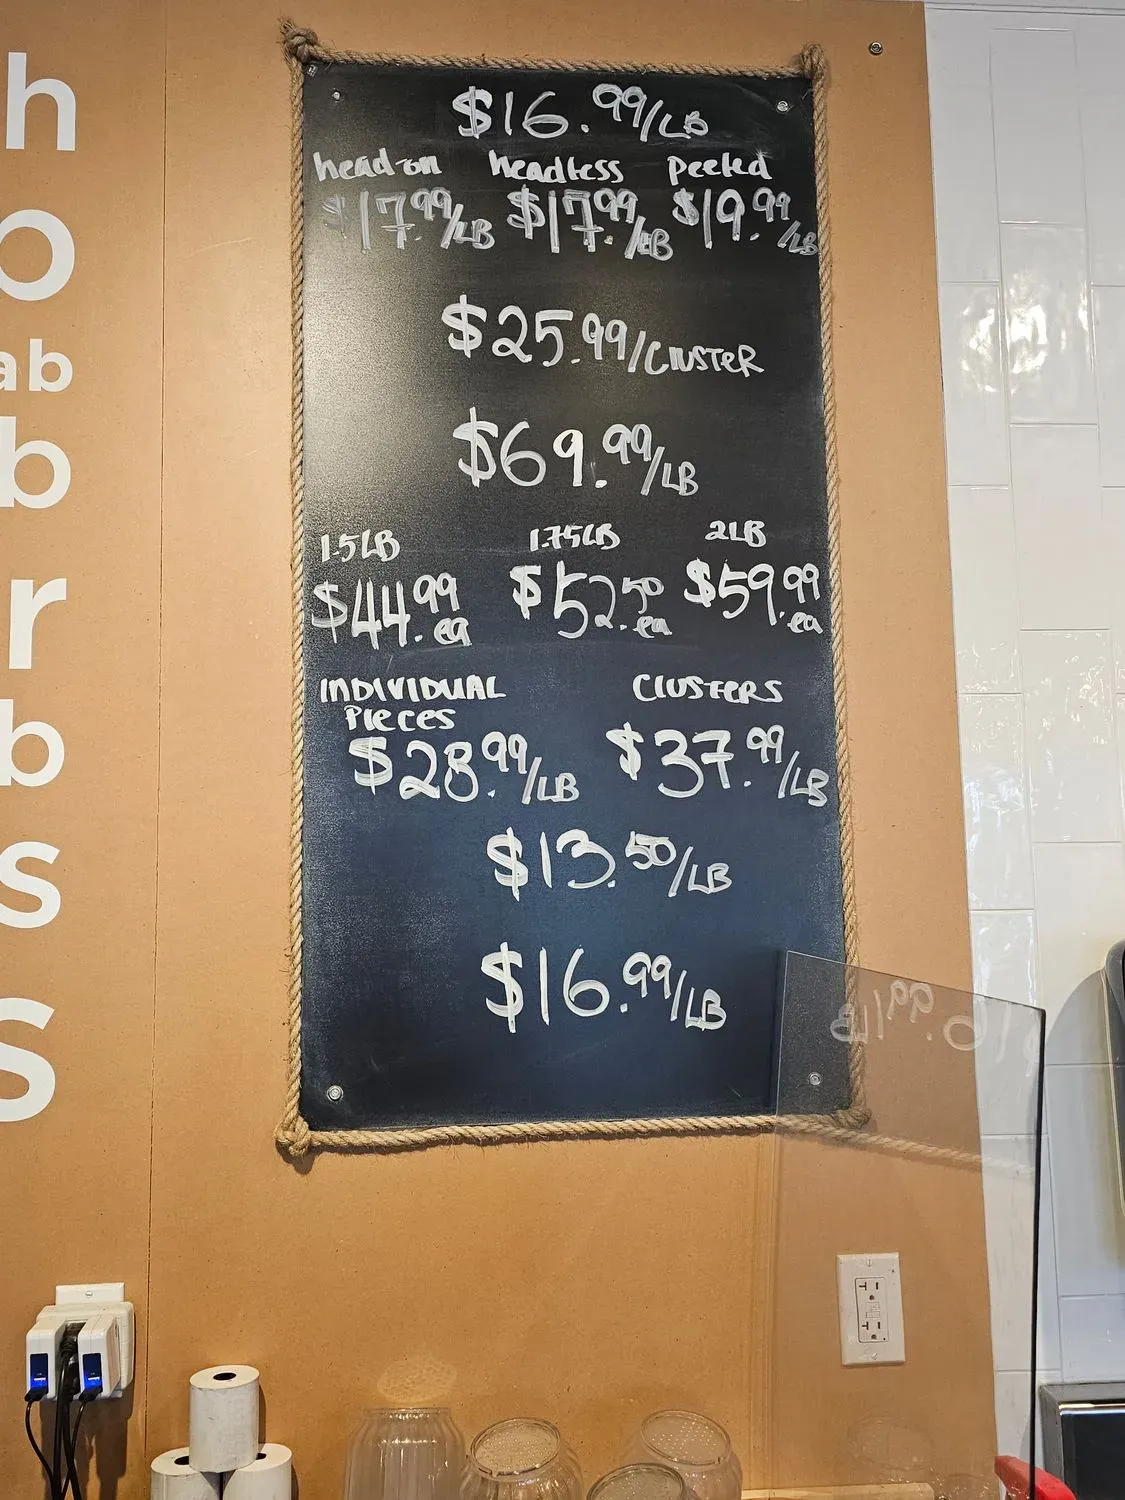 h
$16.99/LB
head-on headless peeled
$17.99/LB $17.99/LB $19.99/LB
o
$25.99/CLUSTER
ab
b
$69.99/LB
1.5LB 1.75LB 2LB
$44.99 ea $52.50 ea $59.99 ea
r
INDIVIDUAL PIECES CLUSTERS
$28.99/LB $37.99/LB
b
$13.50/LB
s
$16.99/LB
s